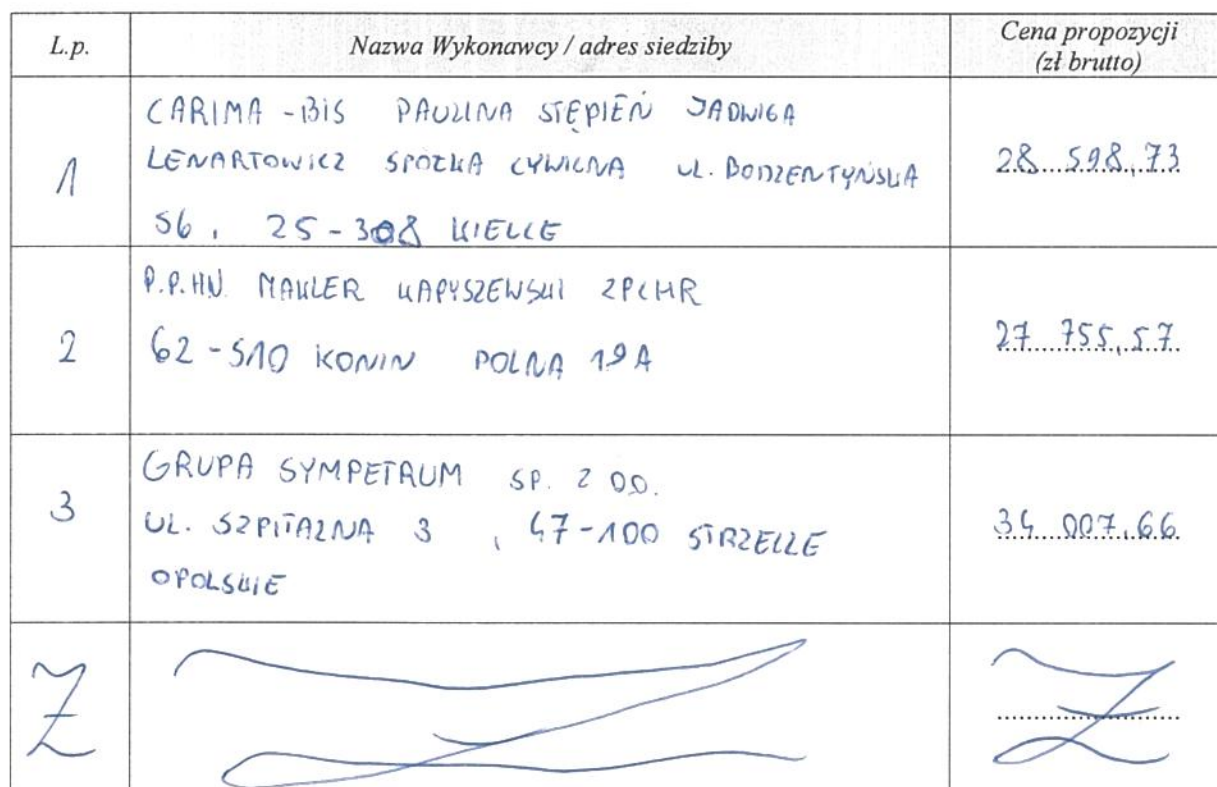 L.p.
Nazwa Wykonawcy / adres siedziby
Cena propozycji
(zł brutto)
1
CARIMA-BIS PAULINA STĘPIEŃ JADWIGA
LENARTOWICZ SPÓŁKA CYWILNA UL. BODZENTYŃSKA
56, 25-308 KIELCE
28 598,73
2
P.P.HU. MAKLER KAPYSZEWSKI ZPCHR
62-510 KONIN POLNA 19A
27 755,57
3
GRUPA SYMPETRUM SP. Z O.O.
UL. SZPITALNA 3, 47-100 STRZELCE
OPOLSKIE
34 007,66